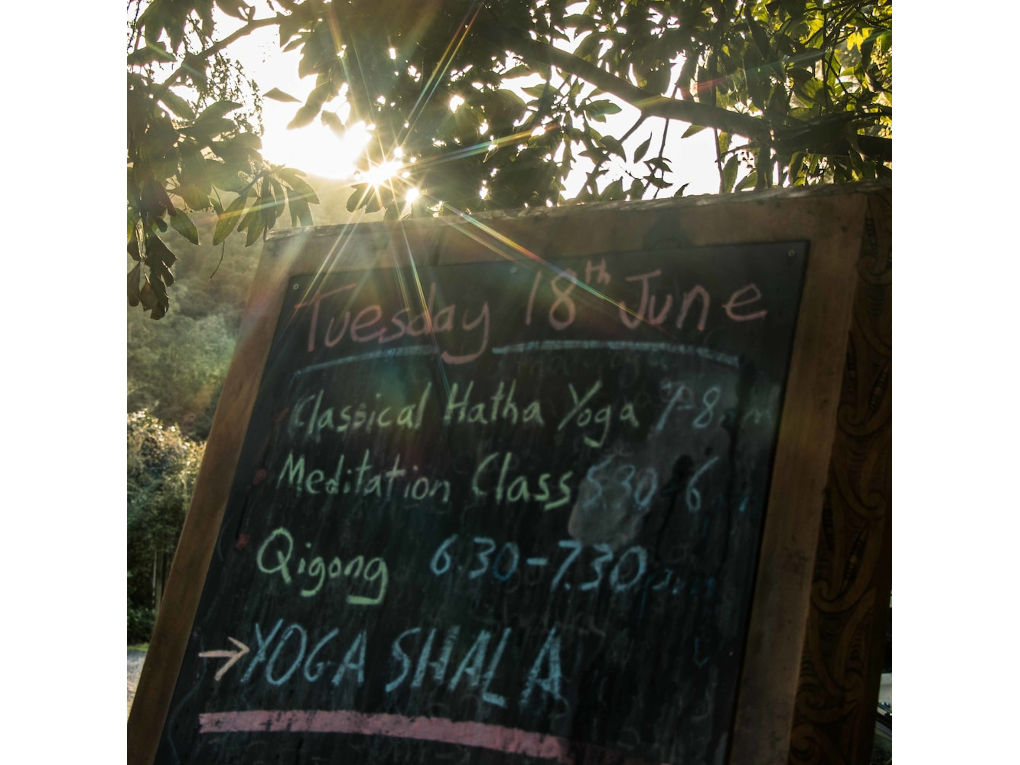 Tuesday 18th June
Classical Hatha Yoga 7-8
Meditation Class 5.30-6
Qigong 6.30-7.30 p.m
→ YOGA SHALA